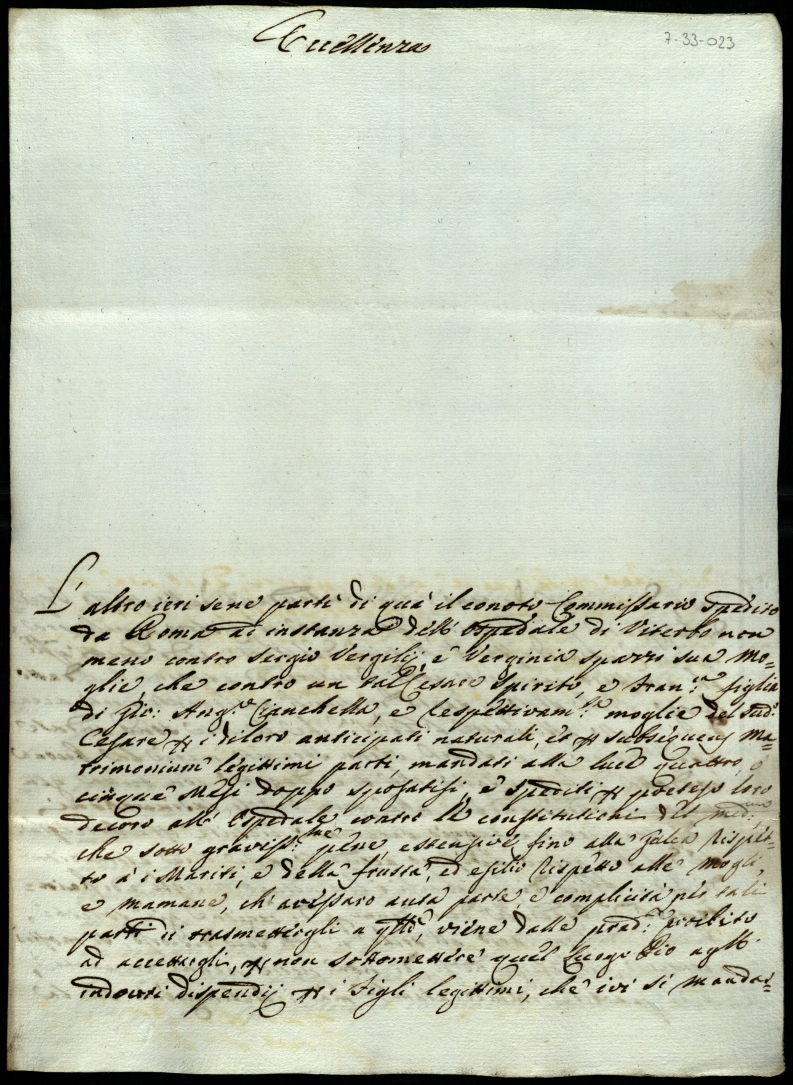 Eccellenza
7-33-023
L'altro ieri sene partì di quà il conoto Commissario spedito
da Roma ad instanza dell'Ospedale di Viterbo non
meno contro Sergio Vergilij, e Verginia Spazzi sua mo=
glie, che contro un tal Cesare Spirito, e Fran:ca figlia
di Gio: Ang:o Cianchella, e respettivam:te moglie del sud:o
Cesare p i diloro anticipati naturali, et p subsequens ma=
trimonium legittimi parti, mandati alla luce quattro, ò
cinque Mesi doppo sposatisi, e spediti p poteso loro
decoro all'Ospedale contro le constitutioni del med:mo
che sotto graviss:me pene, estensive fino alla Galea rispet=
to à i Mariti, e della frusta, ed esilio rispetto alle mogli,
e mamane, ch'avessaro auta parte, e complicità p tali
parti di trasmettergli a qsto, viene dalle pred:e proibito
ad accettargli, p non sottomettere quel Luogo Pio agli
indovuti dispendij p i figli legittimi, che ivi si manda=